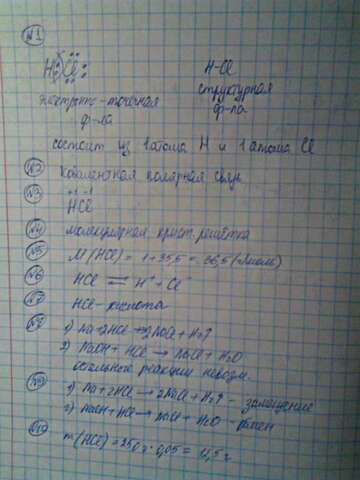 №1
H Cl H-Cl
электронно-точечная структурная
ф-ла ф-ла
состоит из 1 атома H и 1 атома Cl
№2 Ковалентная полярная связь
№3 +1 -1
HCl
№4 молекулярная крист. решётка
№5 M(HCl) = 1+35,5 = 36,5 (г/моль)
№6 HCl ⇌ H⁺ + Cl⁻
№7 HCl - кислота
№8 1) Na+2HCl → 2NaCl + H₂↑
2) NaOH + HCl → NaCl + H₂O
остальные реакции невозм.
№9 1) Na + 2HCl → 2NaCl + H₂↑ - замещение
2) NaOH + HCl → NaCl + H₂O - обмен
№10 m(HCl) = 250 г · 0,05 = 12,5 г